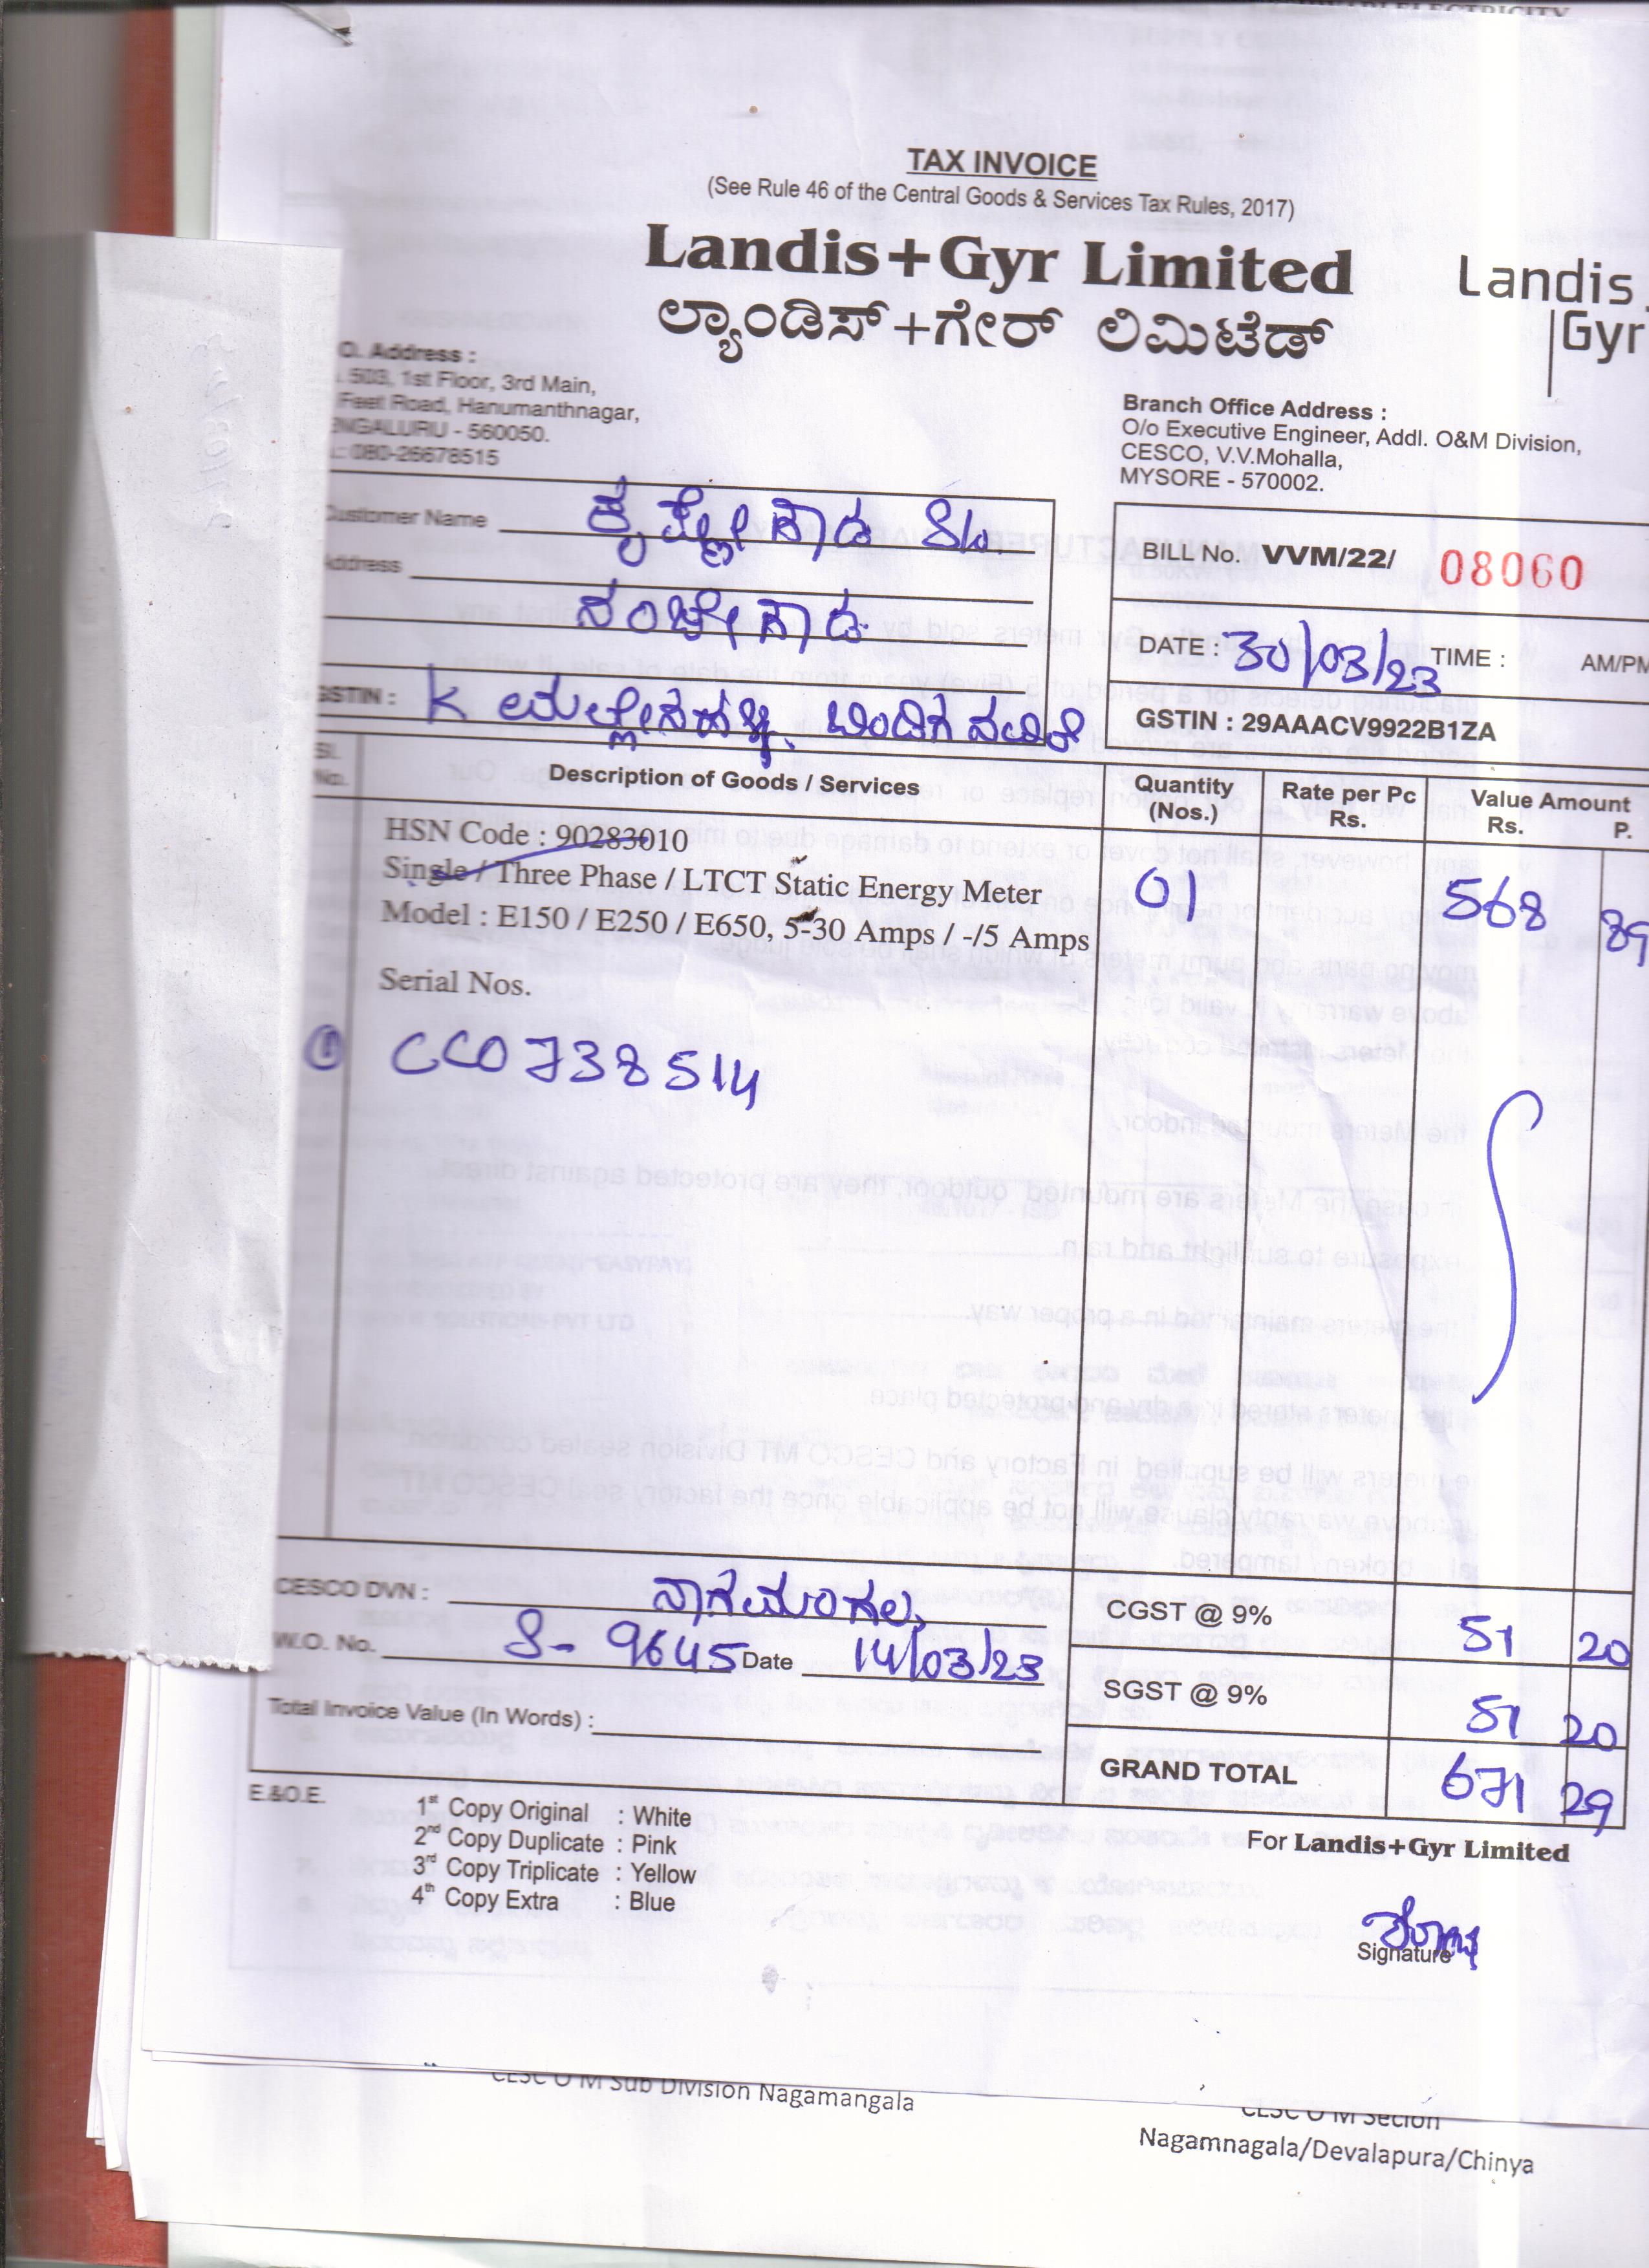 TAX INVOICE
(See Rule 46 of the Central Goods & Services Tax Rules, 2017)
Landis+Gyr Limited
ಲ್ಯಾಂಡಿಸ್+ಗೇರ್ ಲಿಮಿಟೆಡ್
Landis
Gyr
O. Address :
503, 1st Floor, 3rd Main,
Feet Road, Hanumanthnagar,
NGALURU - 560050.
: 080-26678515
Branch Office Address :
O/o Executive Engineer, Addl. O&M Division,
CESCO, V.V.Mohalla,
MYSORE - 570002.
Customer Name ಕೃಷ್ಣೇಗೌಡ S/o
Address
ನಂಜೇಗೌಡ
GSTIN : K
BILL No. VVM/22/ 08060
DATE : 30/03/23 TIME : AM/PM
GSTIN : 29AAACV9922B1ZA
Sl. No. Description of Goods / Services Quantity (Nos.) Rate per Pc Rs. Value Amount Rs. P.
HSN Code : 90283010
Single / Three Phase / LTCT Static Energy Meter 01 568 89
Model : E150 / E250 / E650, 5-30 Amps / -/5 Amps
Serial Nos.
① CC0738514
CESCO DVN : ನಾಗಮಂಗಲ
W.O. No. S- 9645 Date 14/03/23
Total Invoice Value (In Words) :
CGST @ 9% 51 20
SGST @ 9% 51 20
GRAND TOTAL 671 29
E.&O.E.
1st Copy Original : White
2nd Copy Duplicate : Pink
3rd Copy Triplicate : Yellow
4th Copy Extra : Blue
For Landis+Gyr Limited
Signature
CESC O M Sub Division Nagamangala
CESC O M Secion
Nagamnagala/Devalapura/Chinya